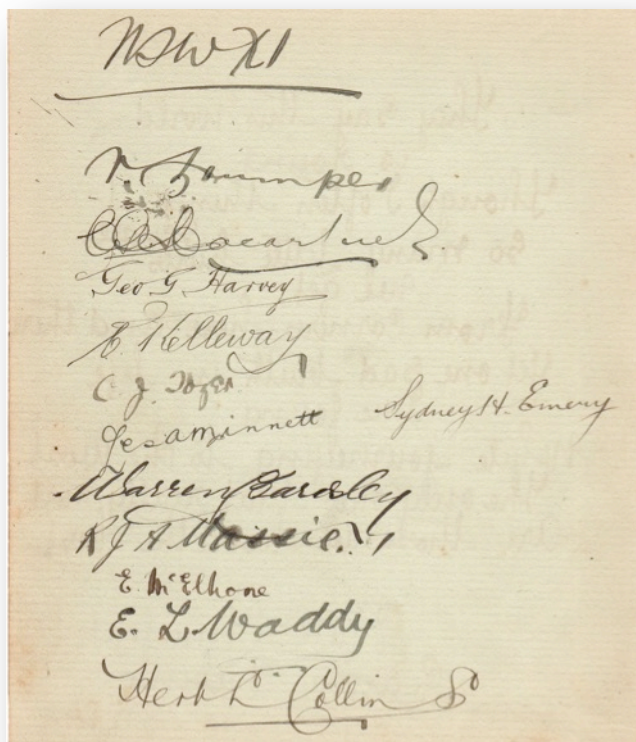 NSW XI
V. Trumper
C G Macartney
Geo. G. Harvey
C. Kelleway
C. J. Tozer
Les A Minnett
Sydney H. Emery
Warren Bardsley
R J A Massie.
E. McElhone
E. L. Waddy
Herb L. Collins